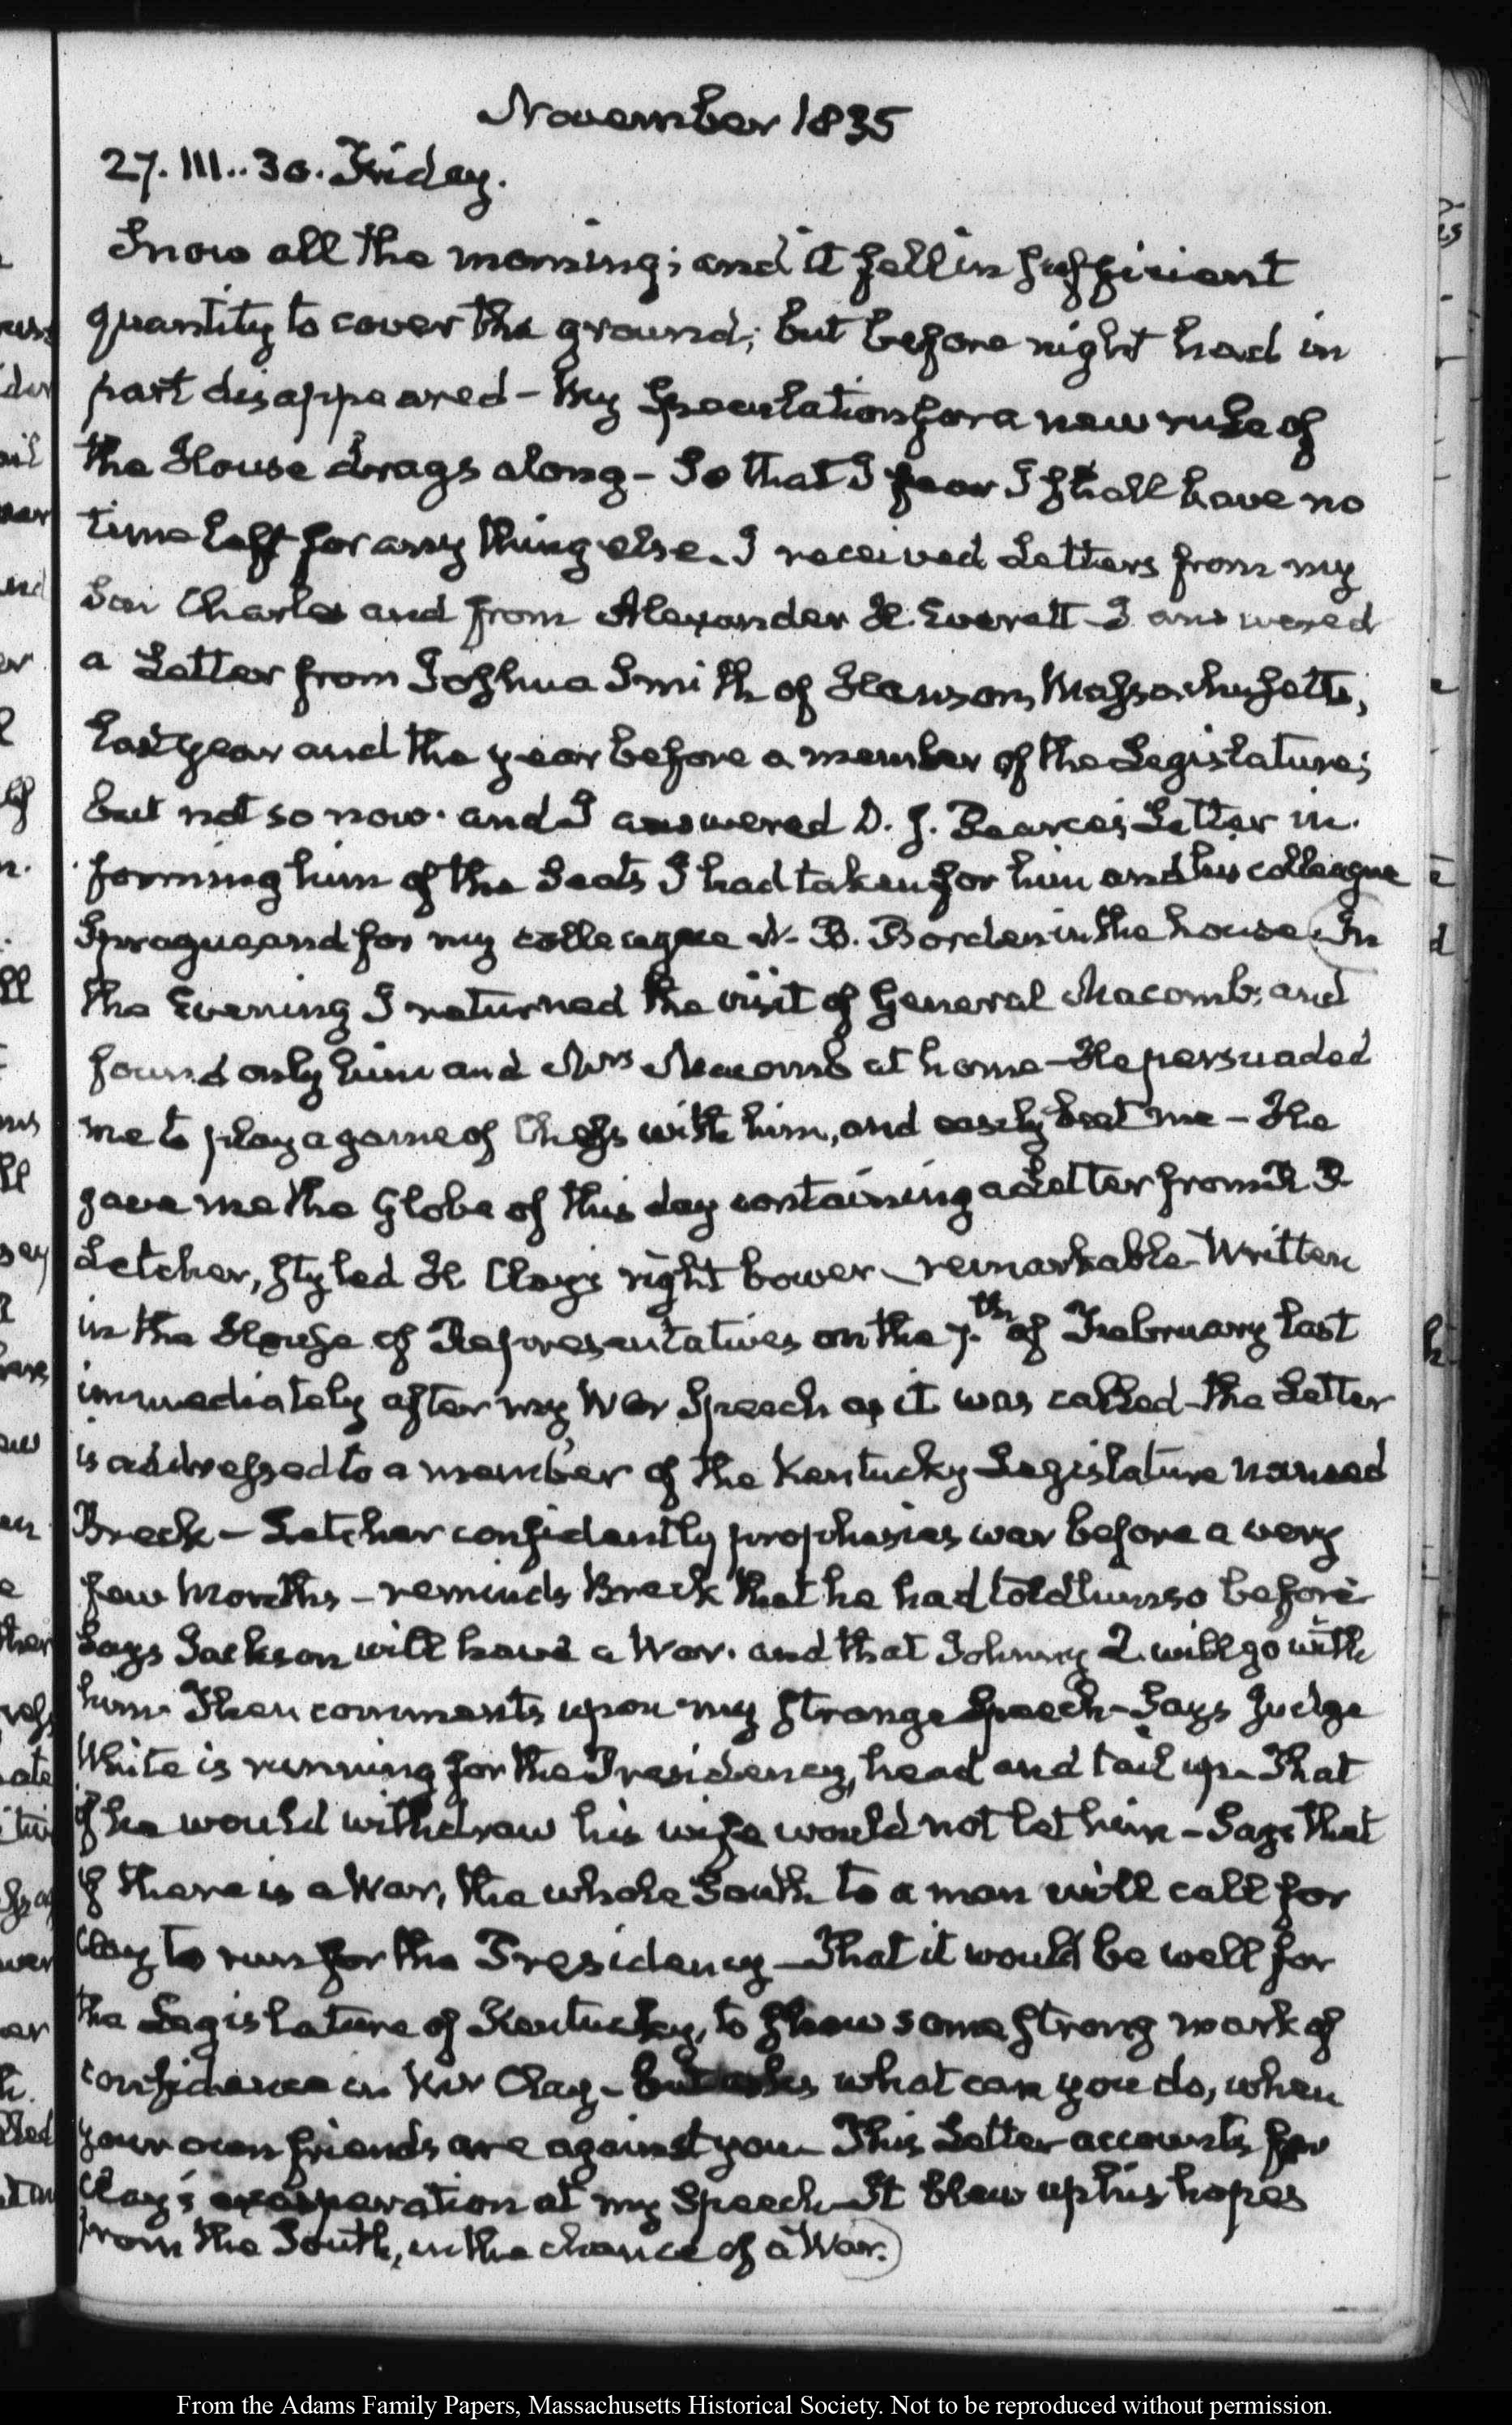 November 1835
27. III..30. Friday.
Snow all the morning; and it fell in sufficient
quantity to cover the ground; but before night had in
part disappeared – My Speculation for a new rule of
the House drags along – So that I fear I shall have no
time left for any thing else. I received Letters from my
Son Charles and from Alexander H. Everett – I answered
a Letter from Joshua Smith of Hanson, Massachusetts,
last year and the year before a member of the Legislature;
but not so now. and I answered D. J. Pearce's Letter in.
forming him of the Seats I had taken for him and his colleague
Sprague, and for my colleague N. B. Borden in the house. In
the Evening I returned the visit of General Macomb; and
found only him and Mrs Macomb at home – He persuaded
me to play a game of Chess with him, and easily beat me – He
gave me the Globe of this day containing a Letter from R. P.
Letcher, styled H. Clay's right bower – remarkable – Written
in the House of Representatives on the 7.th of February last
immediately after my War Speech as it was called – the Letter
is addressed to a member of the Kentucky Legislature named
Breck – Letcher confidently prophesies war before a very
few Months – reminds Breck that he had told him so before
Says Jackson will have a War. and that Johnny Q. will go with
him. Then comments upon my strange Speech – Says Judge
White is running for the Presidency, head and tail up – That
if he would withdraw his wife would not let him – Says that
if there is a War, the whole South to a man will call for
Clay to run for the Presidency – That it would be well for
the Legislature of Kentucky, to show some strong mark of
confidence in Mr Clay – but asks what can you do, when
your own friends are against you – This Letter accounts for
Clay's exasperation at my Speech – It blew up his hopes
from the South, in the chance of a War.
From the Adams Family Papers, Massachusetts Historical Society. Not to be reproduced without permission.